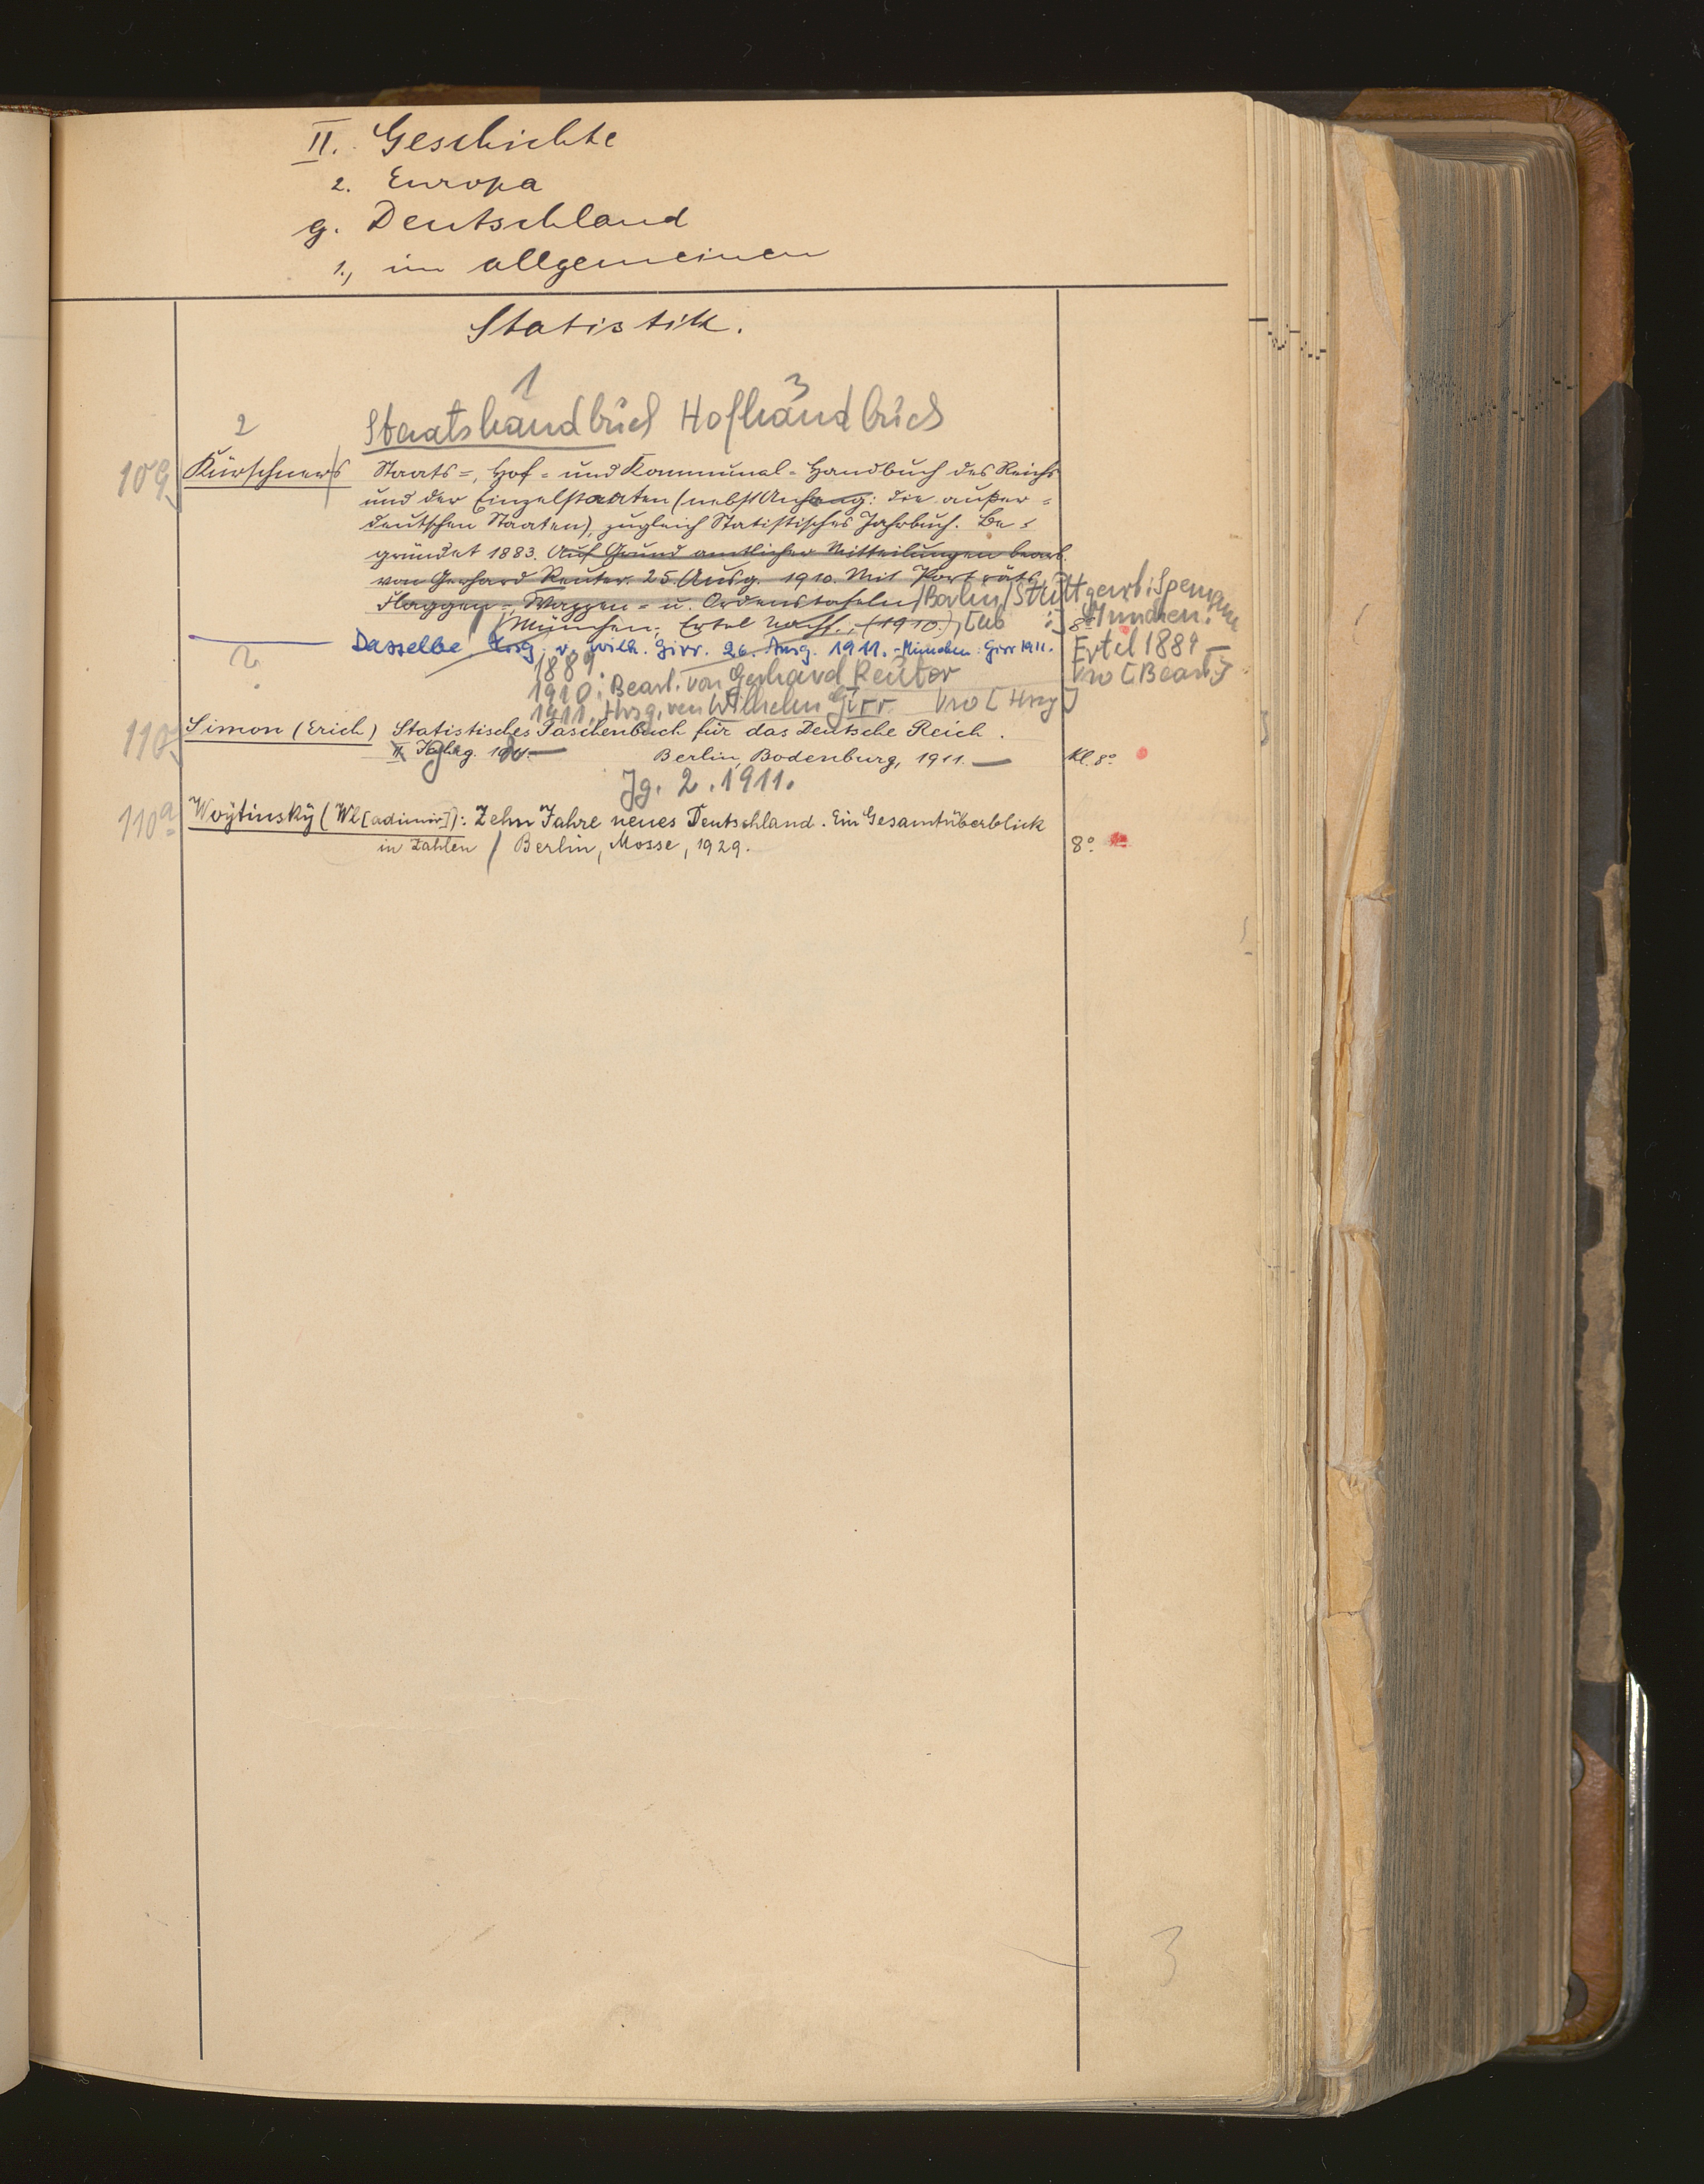 II. Geschichte
2. Europa
g. Deutschland
1., im allgemeinen
Statistik.
1 3
2 Staatshandbuch Hofhandbuch
109 Kürschners Staats=, Hof= und Kommunal=Handbuch des Reichs
und der Einzelstaaten (nebst Anhang: die außer=
deutschen Staaten), zugleich Statistisches Jahrbuch. Be=
gründet 1883. Auf Grund amtlicher Mitteilungen bearb.
von Gerhard Reuter. 25. Ausg. 1910. Mit Porträts
Flaggen=, Wappen= u. Ordenstafeln / Berlin / Stuttgart: Spemann
München: Ertel Nachf., (1910.) [ab :] 8° München:
Dasselbe Hrsg. v. Wilh. Girr. 26. Ausg. 1911. - München: Girr 1911. Ertel 1889 —
2 1889.
1910: Bearb. von Gerhard Reuter Vno [Bearb.]
1911: Hrsg. von Wilhelm Girr. Vno [Hrsg]
110 Simon (Erich) Statistisches Taschenbuch für das Deutsche Reich.
II Jahrg. 1911. — Berlin, Bodenburg, 1911. — Kl. 8°
Jg. 2. 1911.
110a Woytinsky (Wl[adimir]): Zehn Jahre neues Deutschland. Ein Gesamtüberblick
in Zahlen / Berlin, Mosse, 1929. 8°
3